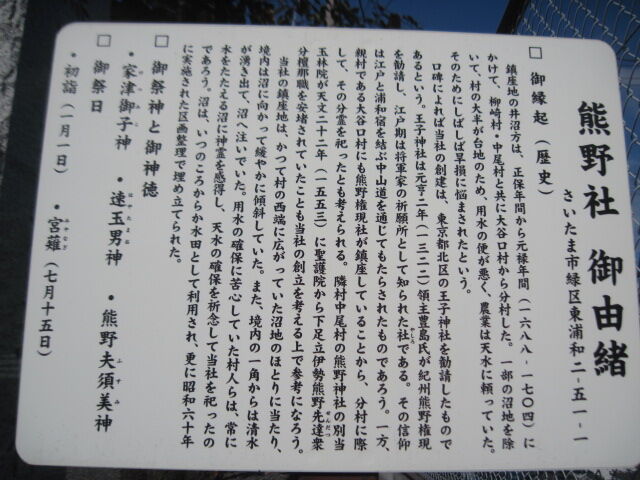 熊野社 御由緒
さいたま市緑区東浦和二-五一-一
□ 御縁起（歴史）
鎮座地の井沼方は、正保年間から元禄年間（一六八八-一七〇四）に
かけて、柳崎村・中尾村と共に大谷口村から分村した。一部の沼地を除
いて、村の大半が台地のため、用水の便が悪く、農業は天水に頼っていた。
そのためにしばしば旱損に悩まされたという。
口碑によれば当社の創建は、東京都北区の王子神社を勧請したもので
あるという。王子神社は元亨二年（一三二二）領主豊島氏が紀州熊野権現
を勧請し、江戸期は将軍家の祈願所として知られた社やしろである。その信仰
は江戸と浦和宿を結ぶ中山道を通じてもたらされたものであろう。一方、
親村である大谷口村にも熊野権現社が鎮座していることから、分村に際
して、その分霊を祀ったとも考えられる。隣村中尾村の熊野神社の別当
玉林院が天文二十二年（一五五三）に聖護院から下足立伊勢熊野先達せんだつ衆
分檀那職を安堵されていたことも当社の創立を考える上で参考になろう。
当社の鎮座地は、かつて村の西端に広がっていた沼地のほとりに当たり、
境内は沼に向かって緩やかに傾斜していた。また、境内の一角からは清水
が湧き出て、沼へ注いでいた。用水の確保に苦心していた村人らは、常に
水をたたえる沼に神霊を感得し、天水の確保を祈念して当社を祀ったの
であろう。沼は、いつのころからか水田として利用され、更に昭和六十年
に実施された区画整理で埋め立てられた。
□ 御祭神と御神徳
・家津御子神 ・速玉男はやたまお神 ・熊野夫須美ふすみ神
□ 御祭日
・初詣（一月一日） ・宮薙みやなぎ（七月十五日）